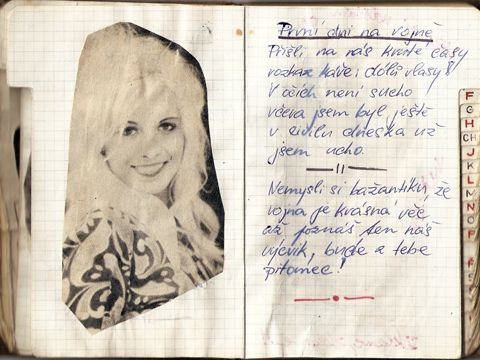 První dni na vojně
Přišli na nás krušné časy
rozkaz káže: dólů vlasy!
V očích není sucho
včera jsem byl ještě
v civilu dneska už
jsem ucho.
Nemysli si bažantíku, že
vojna je krásná věc
až poznáš ten náš
výcvik, bude z tebe
pitomec!
F
G
H
CH
J
K
L
M
N
O
P